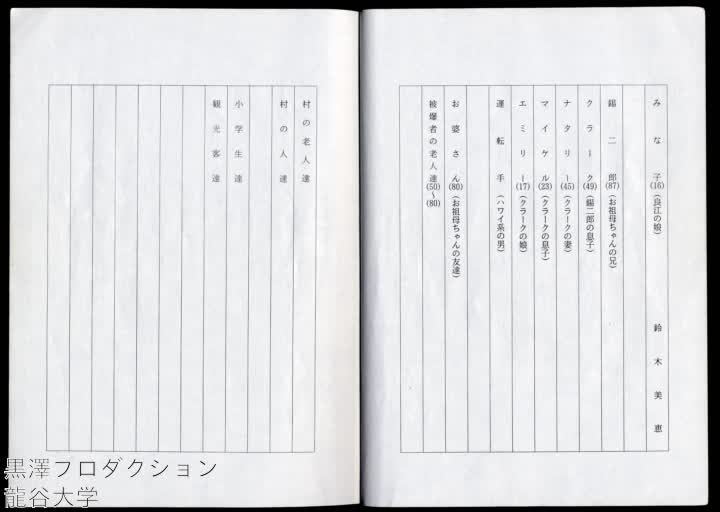 みな子(16)(良江の娘) 鈴木美恵
錫二郎(87)(お祖母ちゃんの兄)
クラーク(49)(錫二郎の息子)
ナタリー(45)(クラークの妻)
マイケル(23)(クラークの息子)
エミリー(17)(クラークの娘)
運転手(ハワイ系の男)
お婆さん(80)(お祖母ちゃんの友達)
被爆者の老人達(50)〜(80)
村の老人達
村の人達
小学生達
観光客達
黒澤フロダクション
龍谷大学